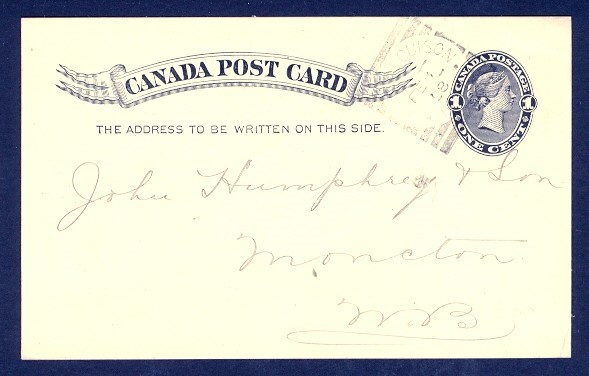 CANADA POST CARD
THE ADDRESS TO BE WRITTEN ON THIS SIDE.
CANADA POSTAGE
1 1
ONE CENT
John Humphrey & Son
Moncton
N.B